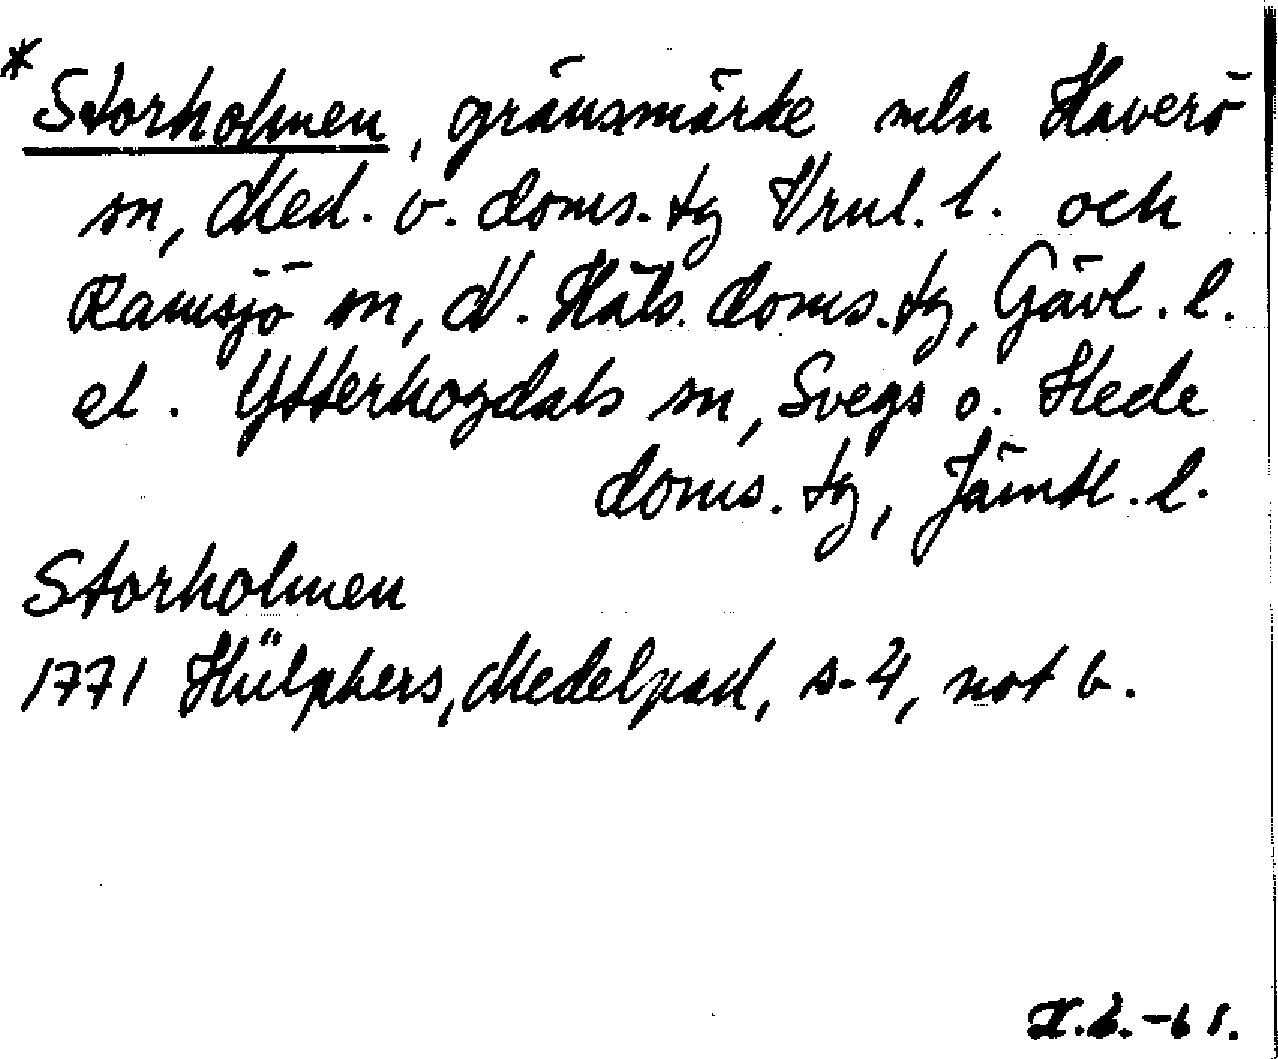 * Storholmen, gränsmärke mln Haverö
sn, Med. v. doms. tg Vrnl. l. och
Ramsjö sn, N. Häls. doms. tg, Gävl. l.
el. Ytterhogdals sn, Svegs o. Hede
doms. tg, Jämtl. l.
Storholmen
1771 Hülphers, Medelpad, s. 4, not b.
-61.